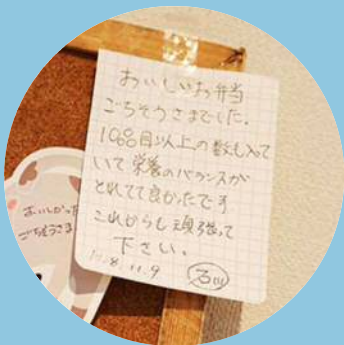 おいしいお弁当
ごちそうさまでした。
10品目以上の数も入って
いて栄養のバランスが
とれてて良かったです
これからも頑張って
下さい。
11.8 11.9
石川
おいしかった
ごちそうさま